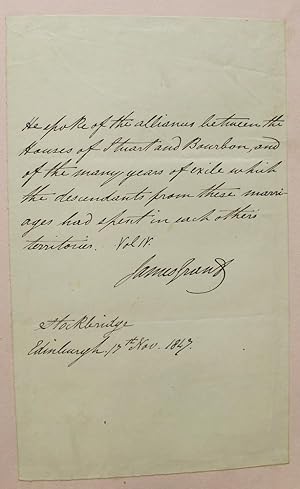 He spoke of the alliances between the
Houses of Stuart and Bourbon, and
of the many years of exile which
the descendants from these marri-
ages had spent in each others
territories. Vol IV.
James Grant
Stockbridge
Edinburgh, 17th Nov. 1847.